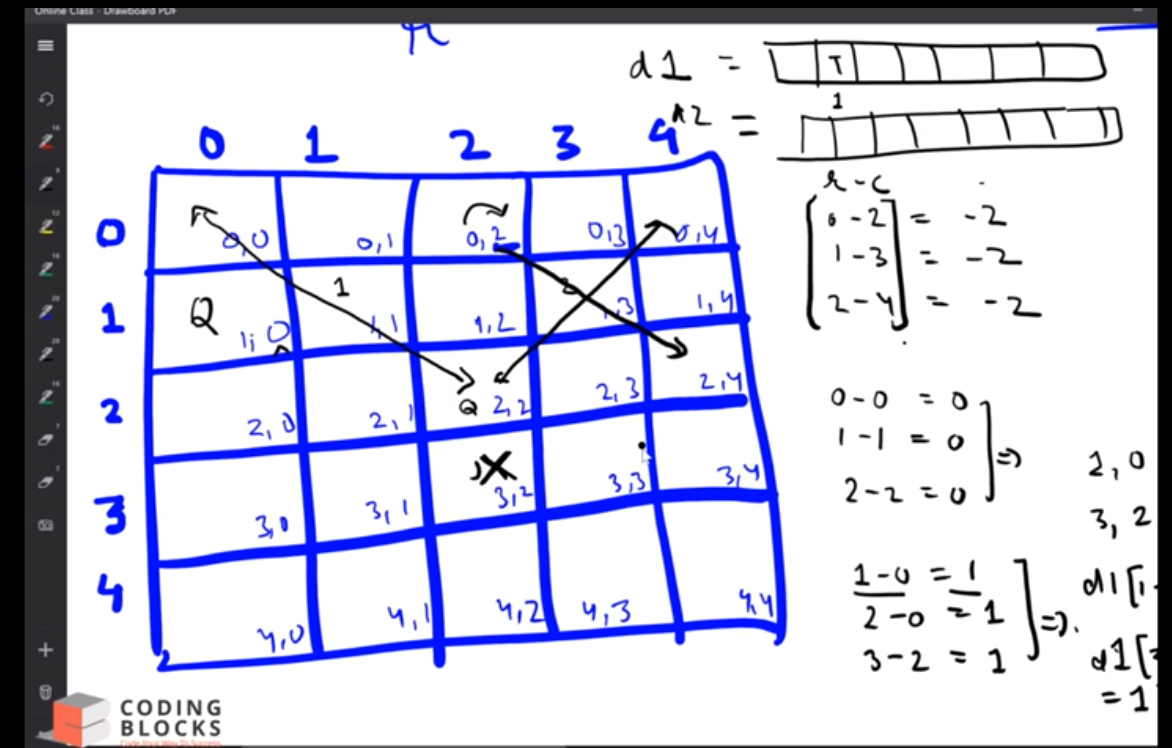 Online Class - Drawboard PDF
d1 =
T
1
2 =
0 1 2 3 4
0 0,0 0,1 0,2 0,3 0,4
1 Q 1,0 1 1,1 1,2 2 ,3 1,4
2 2,0 2,1 Q 2,2 2,3 2,4
3 3,0 3,1 X 3,2 3,3 3,4
4 4,0 4,1 4,2 4,3 4,4
r - c
0 - 2 = -2
1 - 3 = -2
2 - 4 = -2
0 - 0 = 0
1 - 1 = 0
2 - 2 = 0 =>
1,0
3,2
1 - 0 = 1
2 - 0 = 1
3 - 2 = 1 =>.
d1[1-
d1[
= 1
CODING
BLOCKS
Code Your Way To Success